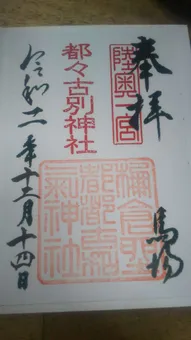 奉拝
陸奥一宮
馬場
都々古別神社
都都古
氣神社
令和二年十二月十四日